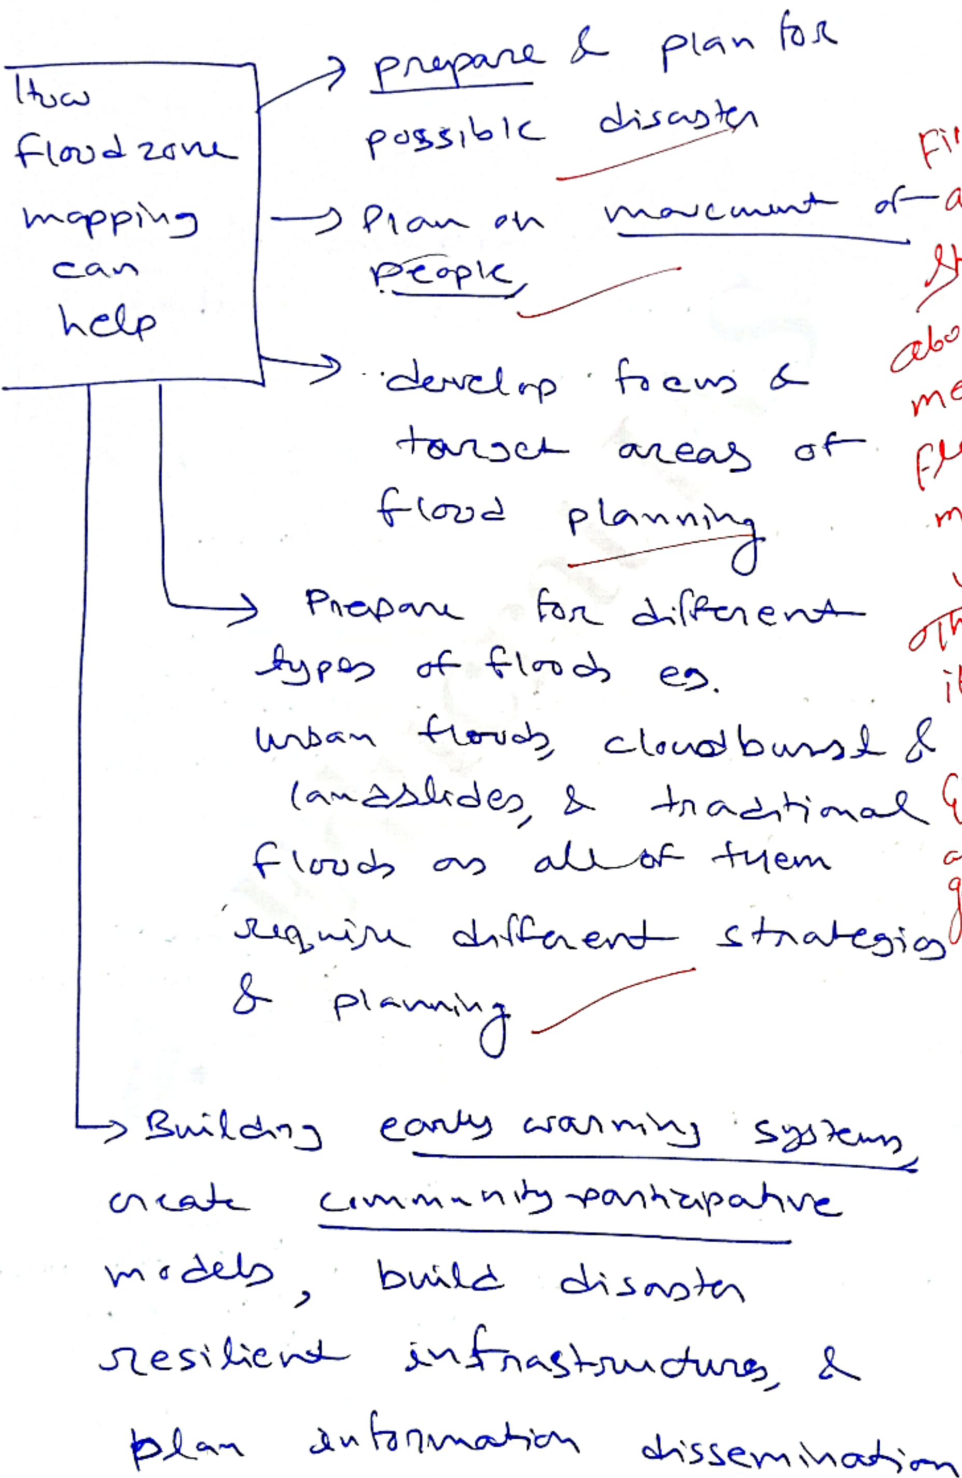 How
flood zone
mapping
can
help
→ prepare & plan for
possible disaster
→ Plan on movement of
people
→ develop focus &
target areas of
flood planning
→ Prepare for different
types of floods eg.
urban floods, cloudburst &
landslides, & traditional
floods as all of them
require different strategies
& planning
→ Building early warning systems,
create community participative
models, build disaster
resilient infrastructure, &
plan information dissemination